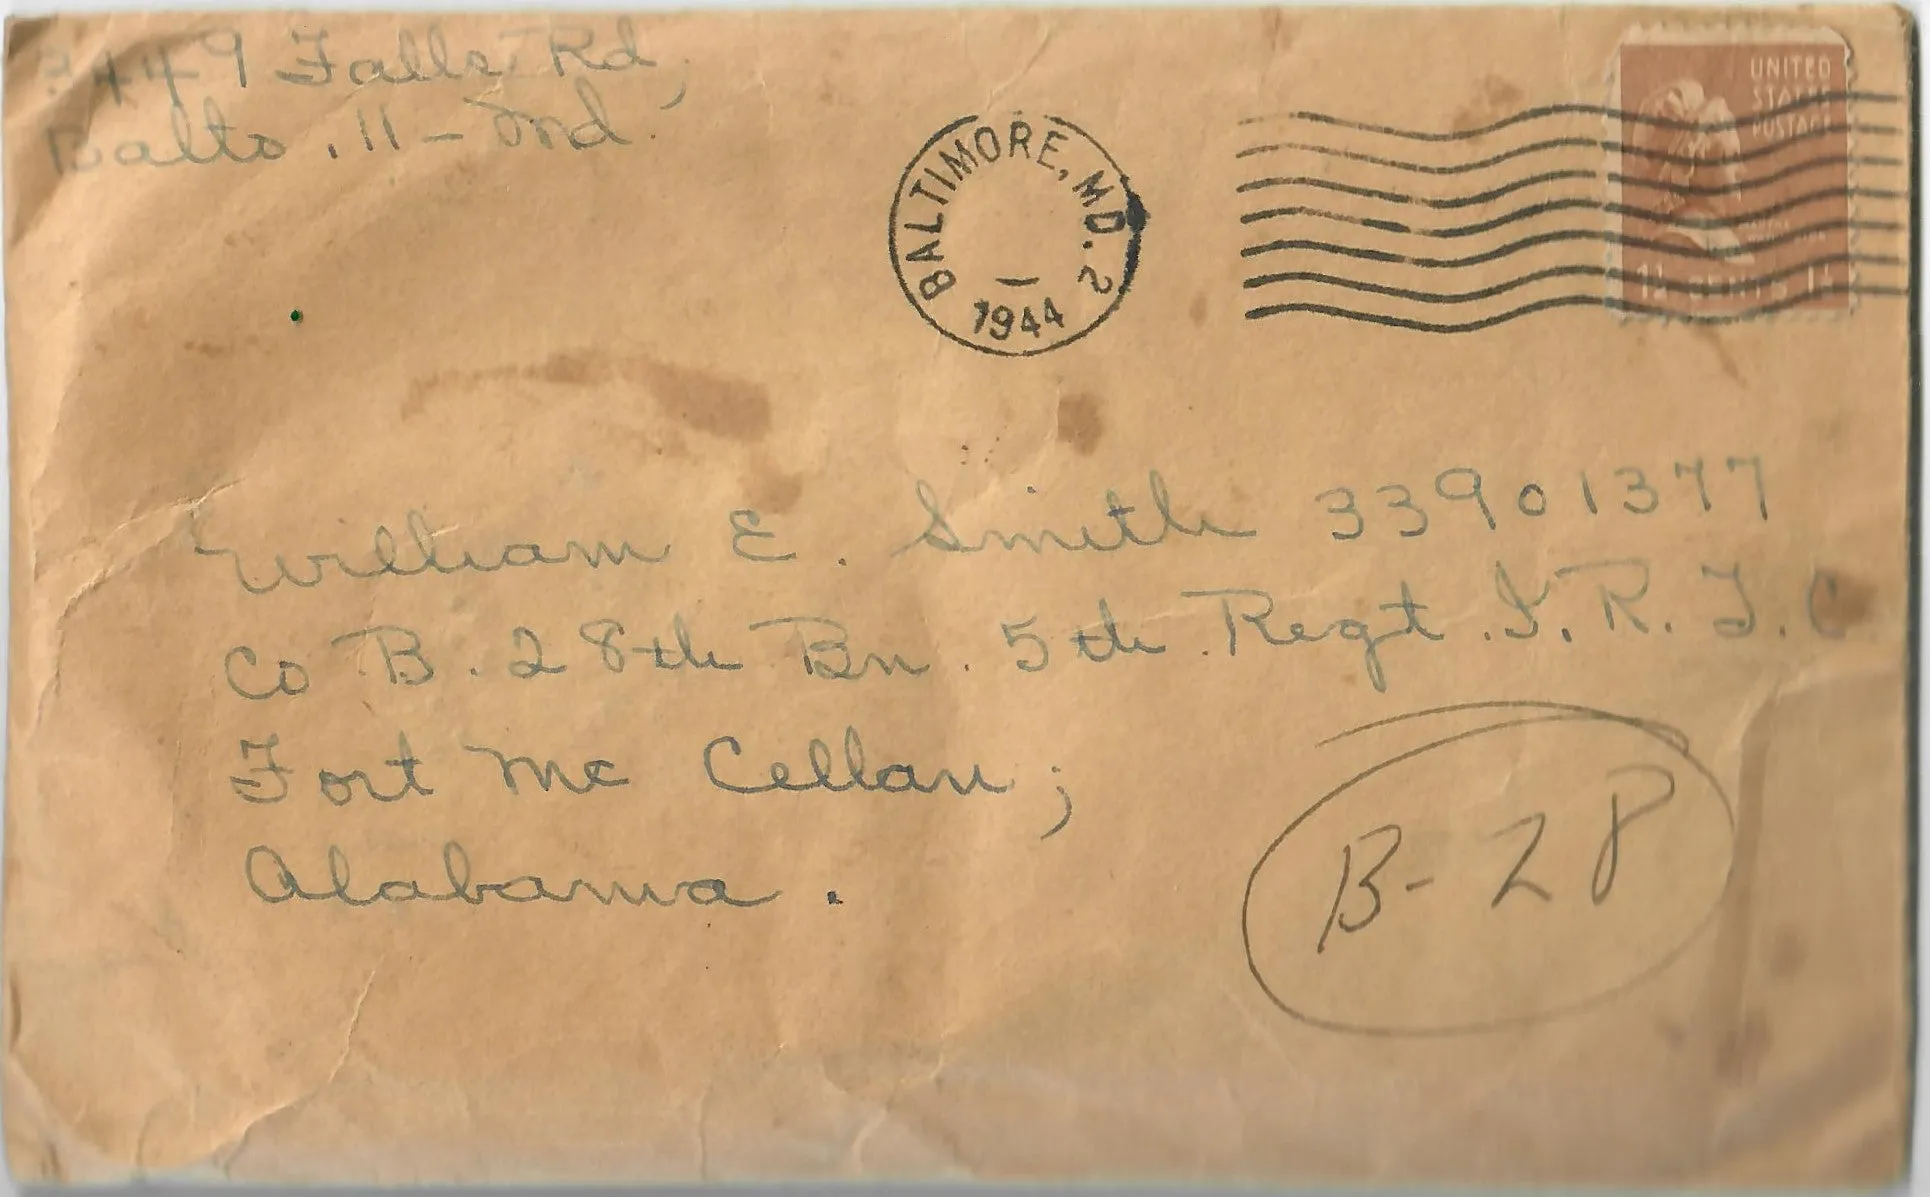 3449 Falls Rd,
Balto. 11 - Md.
BALTIMORE, MD. 2
1944
UNITED
STATES
POSTAGE
1½ CENTS 1½
William E. Smith 33901377
Co B. 28th Bn. 5th Regt. I. R. T. C
Fort Mc Cellan;
Alabama.
B-28